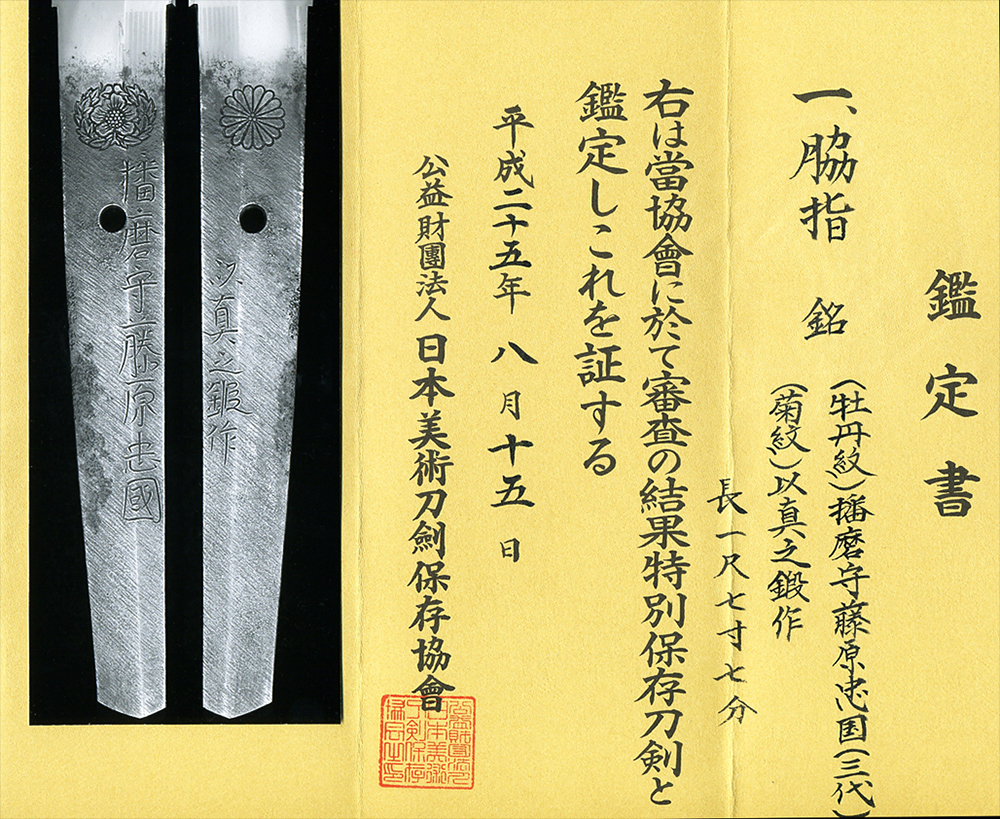 鑑定書
一、脇指 銘
(牡丹紋)播磨守藤原忠国(三代)
(菊紋)以真之鍛作
長一尺七寸七分
右は當協會に於て審査の結果特別保存刀剣と
鑑定しこれを証する
平成二十五年八月十五日
公益財團法人 日本美術刀劍保存協會
以真之鍛作
播磨守藤原忠國